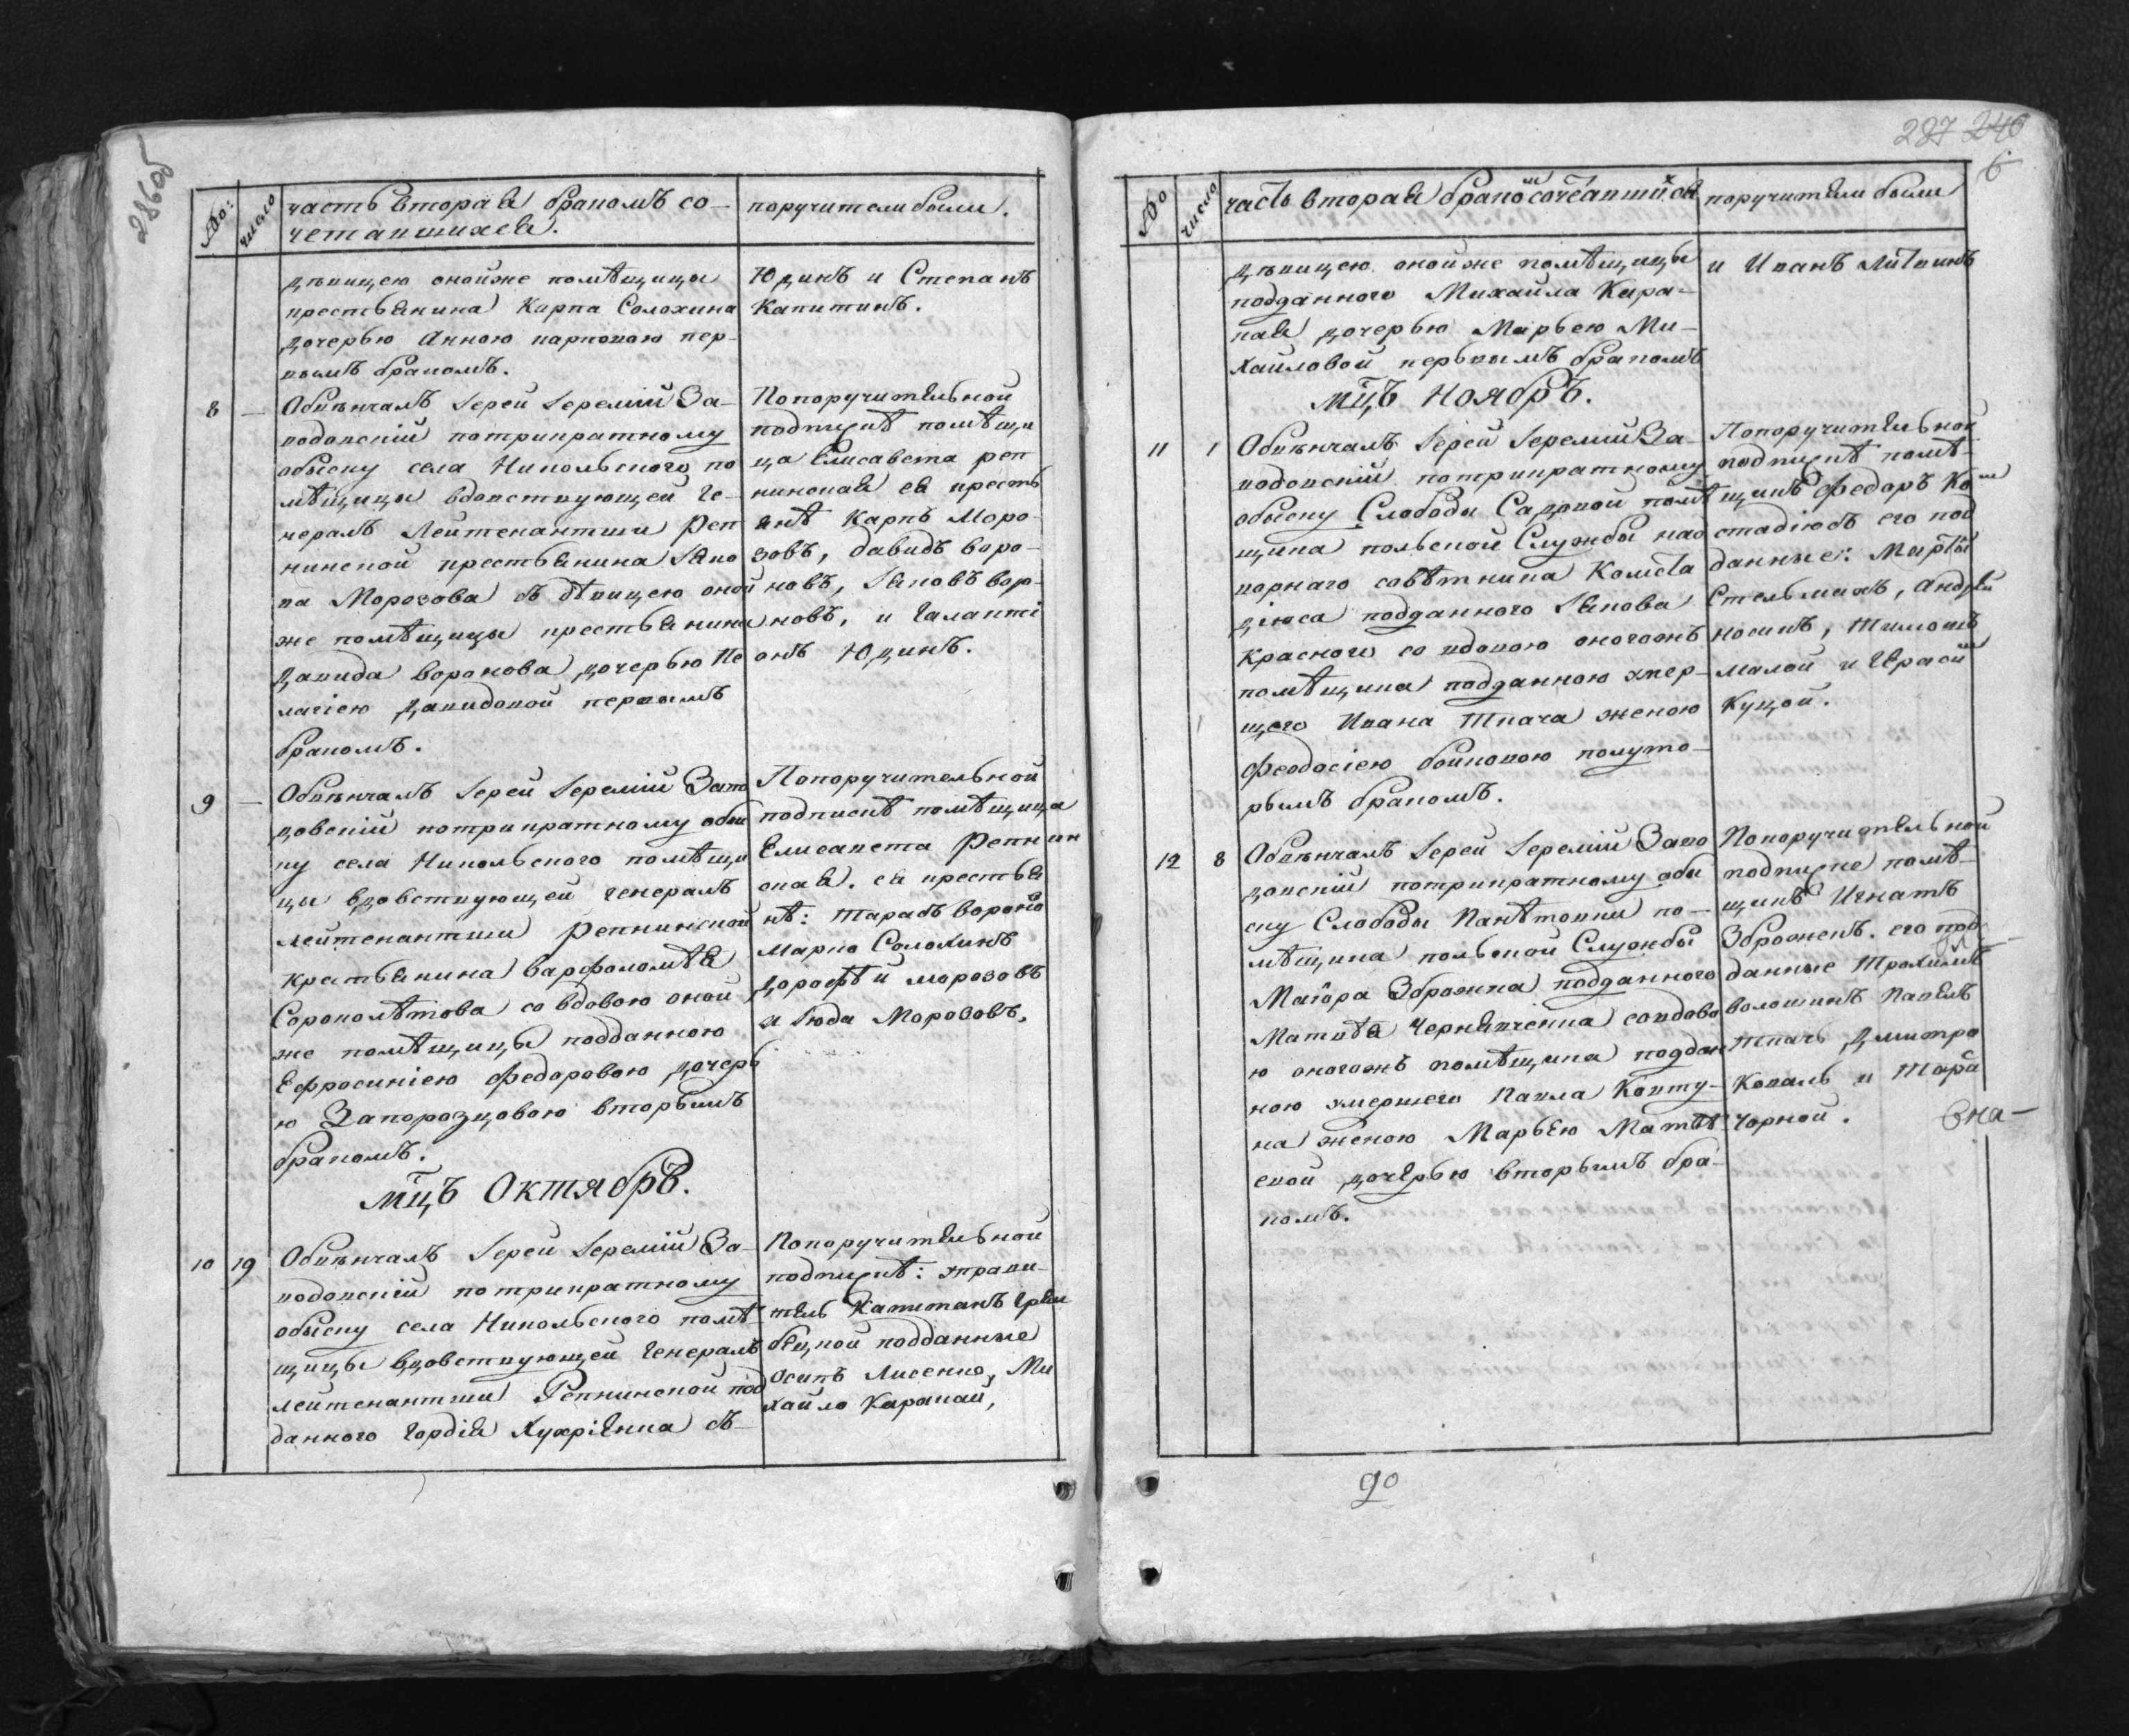 286об
№: число
часть вторая бракомъ со-
четавшихся.
поручители были.
дѣвицею онойже помѣщицы
крестьянина Карпа Солохина
дочерью Анною карповою пер-
вымъ бракомъ.
Юдинъ и Степанъ
Капитинъ.
8 —
Обвѣнчалъ Іерей Іеремій За-
водовскій потрикратному
обыску села Никольского по
мѣщицы вдовствующей Ге-
нералъ Лейтенантши Реп
нинской крестьянина Яко
ва Морозова съ дѣвицею оной
же помѣщицы крестьянина
Давида Воронова дочерью Пе
лагіею Давидовой первымъ
бракомъ.
Попоручительной
подпискѣ помѣщи
ца Елисавета реп
нинская ея кресть
янѣ Карпъ Моро-
зовъ, давидъ воро-
новъ, Яковъ воро-
новъ, и Галакті
онъ Юдинъ.
9 —
Обвѣнчалъ Іерей Іеремій Заво
довскій потрикратному обыс
ку села Никольского помѣщи
цы вдовствующей генералъ
лейтенантши Репнинской
крестьянина варфоломѣя
Сороколѣтова со вдовою оной
же помѣщицы подданною
Ефросиніею федоровою дочерь
ю Запорозцовою вторымъ
бракомъ.
Попоручительной
подпискѣ помѣщица
Елисавета Репнин
ская. ея крестья
нѣ: тарасъ вороно
Марко Солохинъ
дорофѣй морозовъ
и Іюда Морозовъ,
мц҃ъ Октябрь.
10 19
Обвѣнчалъ Іерей Іеремій За-
водовскій потрикратному
обыску села Никольского помѣ
щицы вдовствующей Генералъ
лейтенантши Репнинской под
данного Гордія Кухріенка съ
Попоручительной
подпискѣ: управи-
тель Капитанъ Гре
бецкой подданные
Осипъ Лисенко, Ми
хайло Каракай,
287 246
6
№ число
часть вторая бракомъ сочетавшихся
поручители были
дѣвицею онойже помѣщицы
подданного Михайла Кара-
кая дочерью Марьею Ми-
хайловой первымъ бракомъ
и Иванъ литвинъ
мц҃ъ Ноябрь.
11 1
Обвѣнчалъ Іерей Іеремій За-
водовскій потрикратному
обыску Слободы Садовой помѣ
щика польской Службы над
ворнаго совѣтника Комста
діюса подданного Якова
Красного со вдовою оногожъ
помѣщика подданною умер-
шего Ивана Ткача женою
Феодосіею бойковою полуто-
рымъ бракомъ.
Попоручительной
подпискѣ помѣ-
щикъ федоръ Ком
стадіюсъ его под
данные: Марты
Стельмахъ, Андрей
носикъ, Тимошъ
малой и Герасим
Куцой.
12 8
Обвѣнчалъ Іерей Іеремій Заво
довскій потрикратному обы
ску Слободы Панѣтовки по-
мѣщика польской Службы
Маіора Зброжка подданного
Матвѣя Чернявченка совдово
ю оногожъ помѣщика поддан
ною умершего Павла Ковту-
на женою Марьею Матвѣ
евой дочерью вторымъ бра-
комъ.
Попоручительной
подписке помѣ-
щикъ Игнатъ
Зброжекъ. его под
данные Трохимъ
волошинъ Павелъ
ткачъ Дмитро
Коваль и Тара
Чорной.
вна-
90